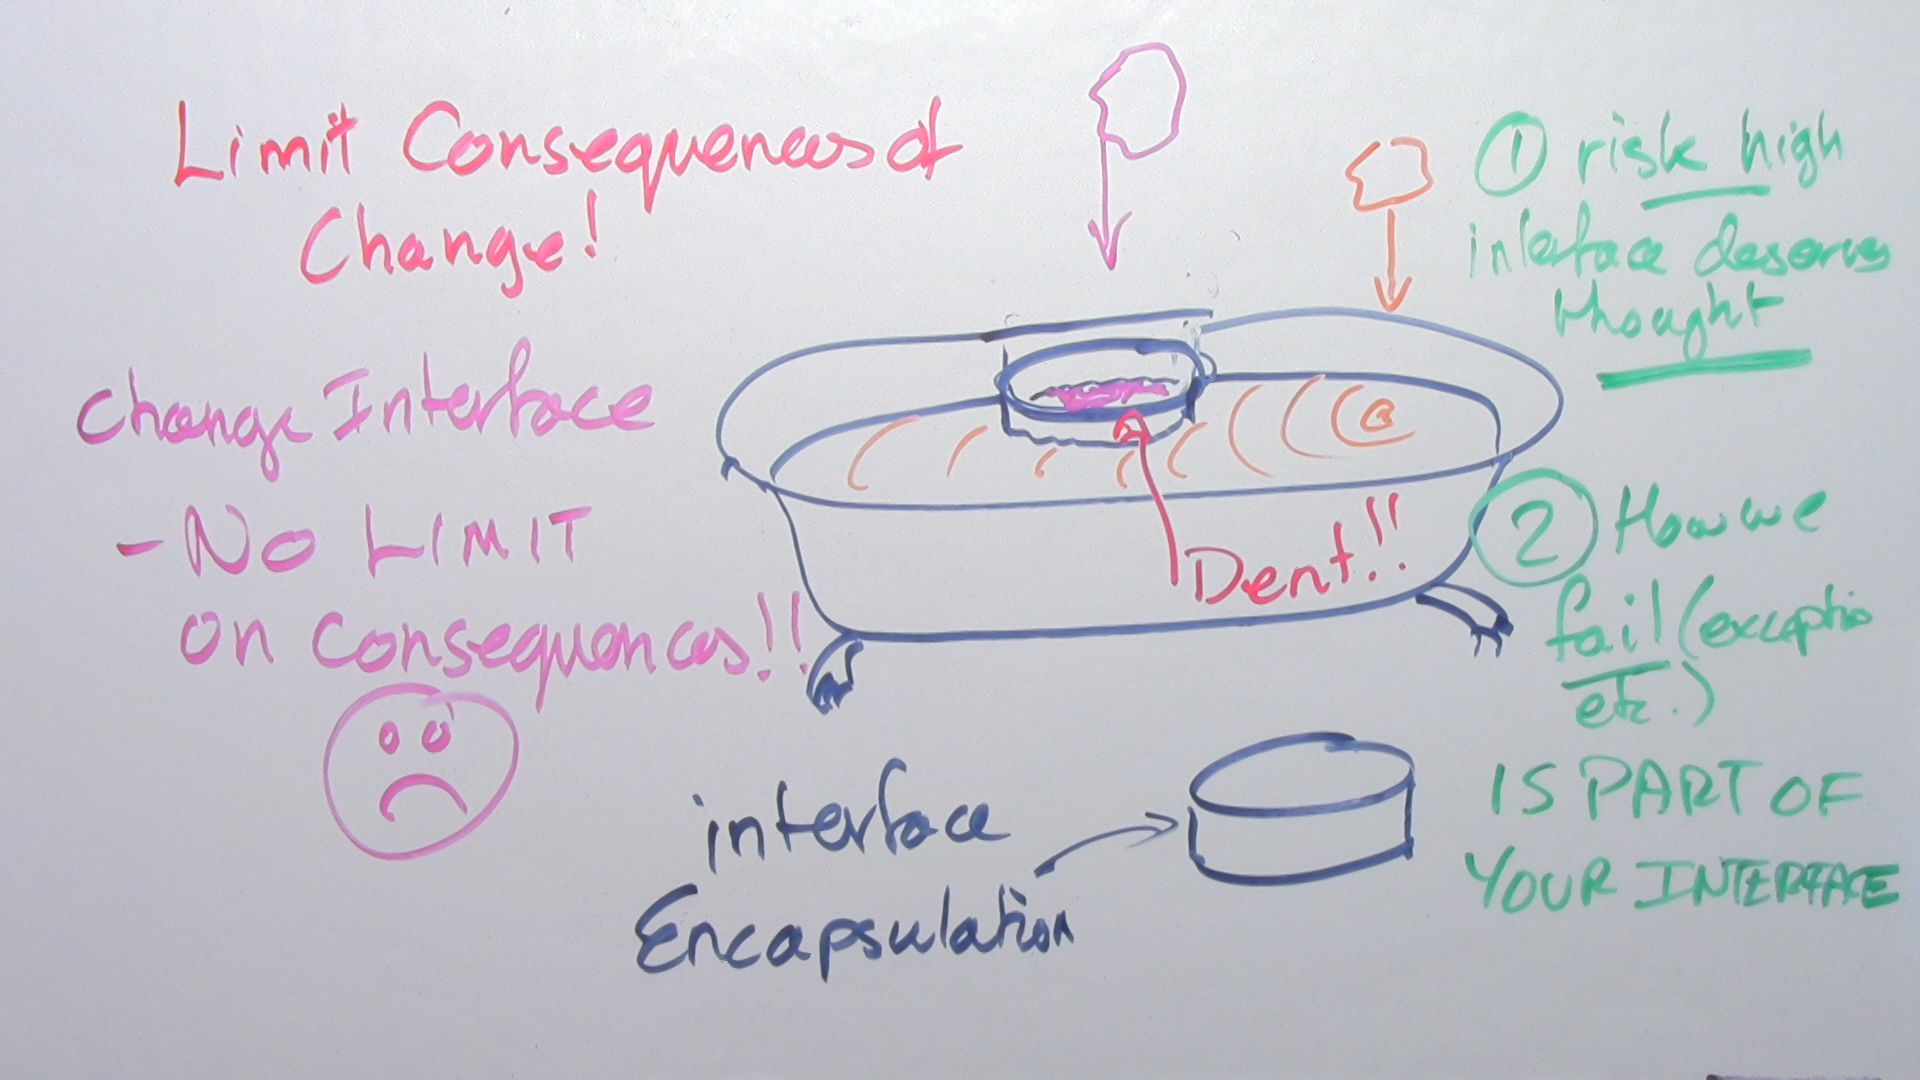 Limit Consequences of
Change!
Change Interface
- No LIMIT
on Consequences!!
Dent!!
interface
Encapsulation
1 risk high
interface deserves
thought
2 How we
fail (exceptio
etc.)
IS PART OF
YOUR INTERFACE